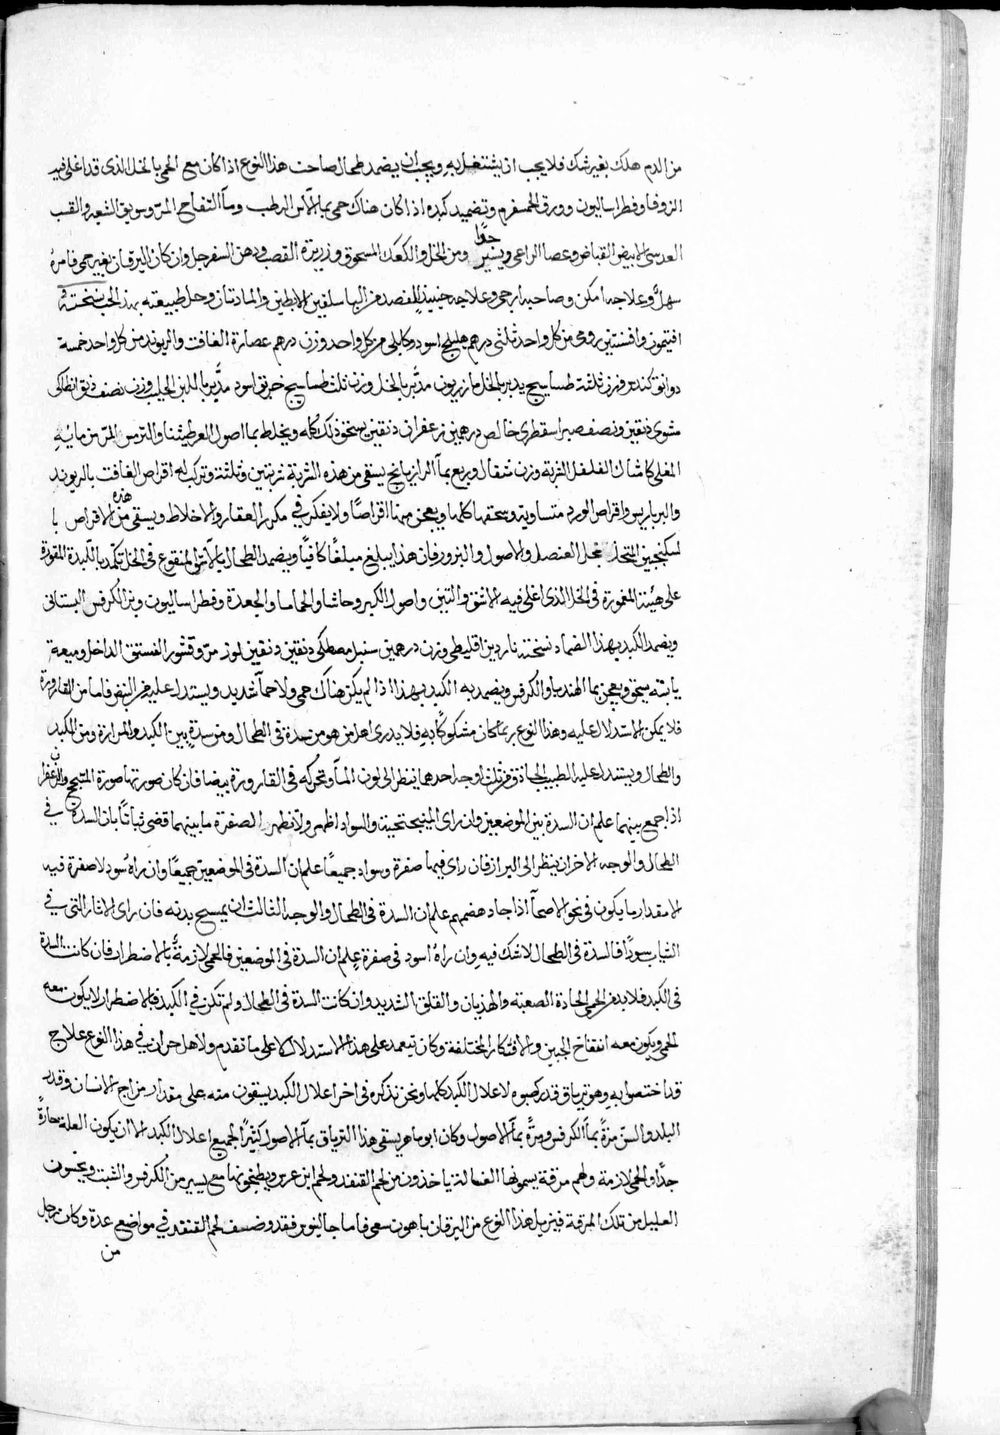 من الدم هلك بغير شك فلا يجب ان يشتغل به ويجب ان يضمد طحال صاحب هذا النوع اذا كان مع الحمى بالخل الذى قد اغلى فيه
الزوفا وفطراساليون وورق الخمسفرم وتضميد كبده اذا كان هناك حمى بماء الآس الرطب وماء التفاح المر وسويق الشعير والقسب
العدسى الابيض القباض وعصا الراعى ويسير جدا ومن الخل والكعك المسحوق وزريرة القصب ودهن السفرجل وان كان اليرقان بغير حمى فامره
سهل وعلاجه امكن وصاحبه ارجى وعلاجه حينيذ الفصد من الباسليقين الابطين والماذنان وحل طبيعته بهذا الحب نسخته
افتيمون وافسنتين رومى من كل واحد ثلثى درهم هليلج اسود وكابلى من كل واحد وزن درهم عصارة الغافت والريوند من كل واحد خمسة
دوانق كندس وزن ثلثة طساسيج يدبر بالخل مازريون مدبر بالخل وزن ثلث طساسيج خربق اسود مدبر باللبن الحليب وزن نصف دنق انطاكى
مشوى دنقين ونصف صبر اسقطرى خالص درهمين زعفران دنقين يسحق ذلك كله ويخلط بماء اصول العرطنيثا والترمس المر من مايه
المغلى كامثال الفلفل الشربة وزن مثقال وربع بماء الرازيانج يسقى من هذه الشربة شربتين وثلثة وتركب له اقراص الغافت بالريوند
والبرباريس واقراص الورد متساوية وسحقها كلها ويعجن منها اقراصا ولا يفكر فى مكرر العقار والاخلاط ويسقى من هذه الاقراص با
لسكنجبين المتخذ بخل العنصل والاصول والبزور فان هذا يبلغ مبلغا كافيا ويضمد الطحال بالآس المنقوع فى الخل تكمد باللبدة المقورة
على هيئة المغمورة فى الخل الذى اغلى فيه الاشق والتين واصول الكبر وحاشا والحماما والجعدة وفطراساليون وبزر الكرفس البستانى
ويضمد الكبد بهذا الضماد نسخته ناردين اقليطى وزن درهمين سنبل مصطكى دنقين دنقين لوز مر وقشور الفستق الداخل وميعة
يابسة يسحق ويعجن بماء الهندبا والكرفس ويضمد به الكبد بهذا اذا لم يكن هناك حمى ولا حماء شديد ويستدل عليه من النبض فاما من القارورة
فلا يمكن الاستدلال عليه وهذا النوع ربما كان مشكوكا به فلا يدرى اهل من هو من سدة فى الطحال ومن سدة بين الكبد والمرارة ومن الكبد
والطحال ويستدل عليه الطبيب الحاذق من ثلث اوجه احدها ينظر الى لون الماء ويحركه فى القارورة بيضا فان كان صورتها صورة السبج والزعفران
اذا جمع بينهما علم ان السدة بين الموضعين وان راى السبجتحيته والسواد اظهر ولا تظهر الصفرة ما بينهما قضى ثباتا بان السدة فى
الطحال والوجه الاخر ان ينظر الى البراز فان راى فيها صفرة وسواد جميعا علم ان السدة فى الموضعين جميعا وان راه اسود لا صفرة فيه
الا مقدار ما يكون فى نحو الاصحاء اذا جاد هضمهم علم ان السدة فى الطحال والوجه الثالث ان يمسح بدنه فان راى الاثار التى فى
الثياب سودا فالسدة فى الطحال لا شك فيه وان راه اسود فى صفرة علم ان السدة فى الموضعين فالحمى لازمة بالاضطرار فان كانت السدة
فى الكبد فلا بد من الحمى الحادة الصعبة والهذيان والقلق الشديد وان كانت السدة فى الطحال ولم تكن فى الكبد فبالاضطرار لا يكون معه
لحمى ويكون معه انتفاخ الجبين والافكار المختلفة وكان يعمد على هذا الاستدلال كاعلى ما تقدم ولاهل حران فى هذا النوع علاج
قد اختصوا به وهو ترياق قد ركبوه لاعلال الكبد كلها ونحن نذكره فى اخر اعلال الكبد يسقون منه على مقدار مزاج الانسان وقدر
البلد والسن مرة بماء الكرفس ومرة بماء الاصول وكان ابو ماهر يسقى هذا الترياق بماء الاصول كثيرا لجميع اعلال الكبد الا ان يكون العلة حارة
جدا والحمى لازمة ولهم مرقة يسمونها الغسالة يا خذون من لحم القنفد ولحم ابن عرس ويطبخونها مع يسير من الكرفس والشبت ويحسون
العليل من تلك المرقة فيزيل هذا النوع من اليرقان باهون سعى فاما جالينوس فقد وصف لحم القنفد فى مواضع عدة وكان رجل
من